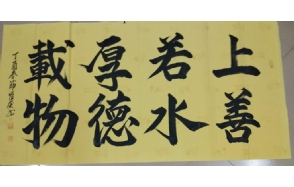 上善
若水
厚德
載物
丁酉春節